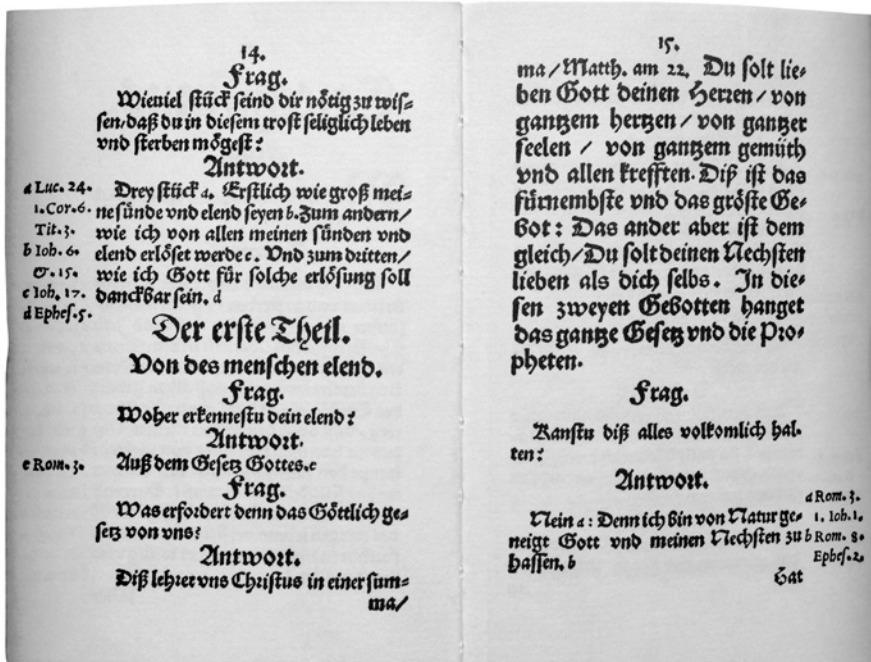 14.
Frag.
Wieuiel stück seind dir nötig zu wis=
sen/daß du in diesem trost seliglich leben
vnd sterben mögest?
Antwort.
a Luc. 24. Drey stück a. Erstlich wie groß mei=
1. Cor. 6. ne sünde vnd elend seyen b. Zum andern/
Tit. 3. wie ich von allen meinen sünden vnd
b Ioh. 6. elend erlöset werde c. Vnd zum dritten/
& 15. wie ich Gott für solche erlösung soll
c Ioh. 17. danckbar sein. d
d Ephes. 5.
Der erste Theil.
Von des menschen elend.
Frag.
Woher erkennestu dein elend?
Antwort.
e Rom. 3. Auß dem Gesetz Gottes. e
Frag.
Was erfordert denn das Göttlich ge=
setz von vns?
Antwort.
Diß lehret vns Christus in einer sum=
ma/
15.
ma/Matth. am 22. Du solt lie=
ben Gott deinen Herren/von
gantzem hertzen/von gantzer
seelen / von gantzem gemüth
vnd allen krefften. Diß ist das
fürnembste vnd das gröste Ge=
bot: Das ander aber ist dem
gleich/Du solt deinen Nechsten
lieben als dich selbs. In die=
sen zweyen Gebotten hanget
das gantze Gesetz vnd die Pro=
pheten.
Frag.
Kanstu diß alles volkomlich hal=
ten?
Antwort.
Nein a: Denn ich bin von Natur ge= a Rom. 3.
neigt Gott vnd meinen Nechsten zu 1. Ioh. 1.
hassen. b b Rom. 8.
Ephes. 2.
Hat